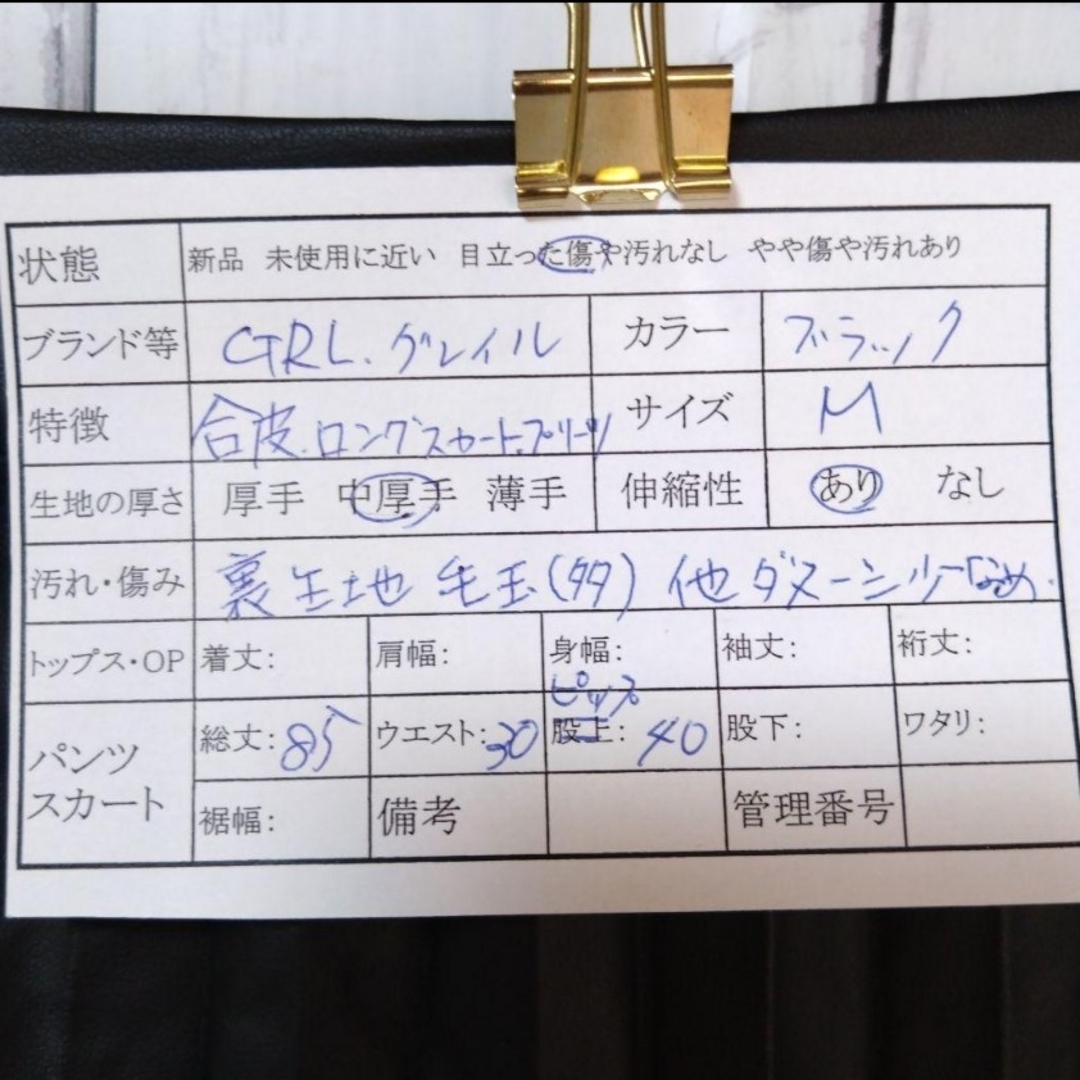 状態 新品 未使用に近い 目立った傷や汚れなし やや傷や汚れあり
ブランド等 GRL.グレイル カラー ブラック
特徴 合皮.ロングスカート.プリーツ サイズ M
生地の厚さ 厚手 中厚手 薄手 伸縮性 あり なし
汚れ・傷み 裏生地毛玉(多) 他ダメージ少なめ.
トップス・OP 着丈: 肩幅: 身幅: 袖丈: 裄丈:
ヒップ
パンツ スカート 総丈: 85 ウエスト: 30 股上: 40 股下: ワタリ:
裾幅: 備考 管理番号